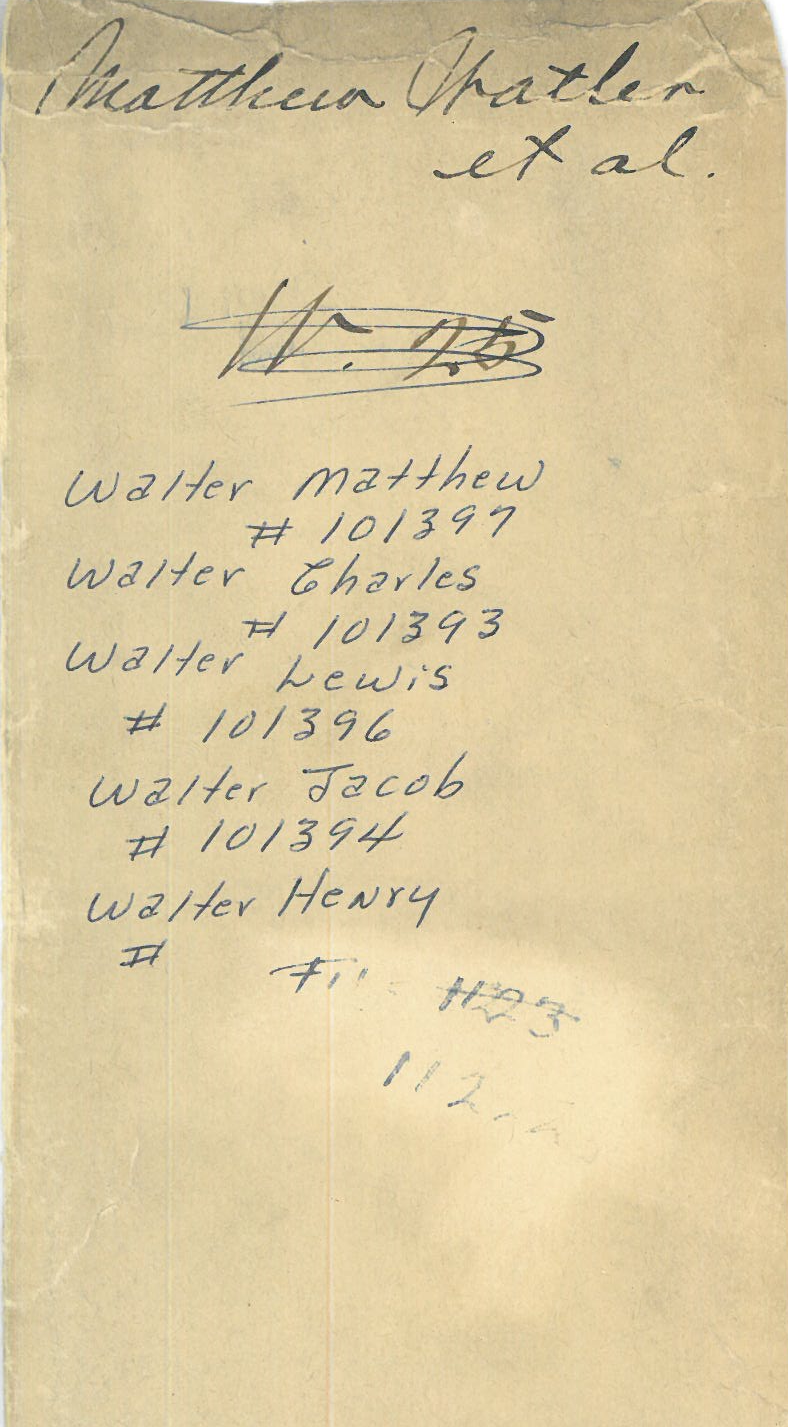 Matthew Walter
et al.
W. 25
Walter Matthew
# 101397
Walter Charles
# 101393
Walter Lewis
# 101396
Walter Jacob
# 101394
Walter Henry
#
1123
112